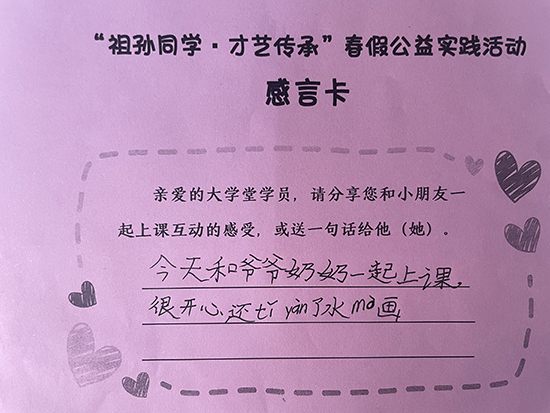 “祖孙同学·才艺传承”春假公益实践活动
感言卡
亲爱的大学堂学员，请分享您和小朋友一
起上课互动的感受，或送一句话给他（她）。
今天和爷爷奶奶一起上课，
很开心还tǐ yàn了水mò画